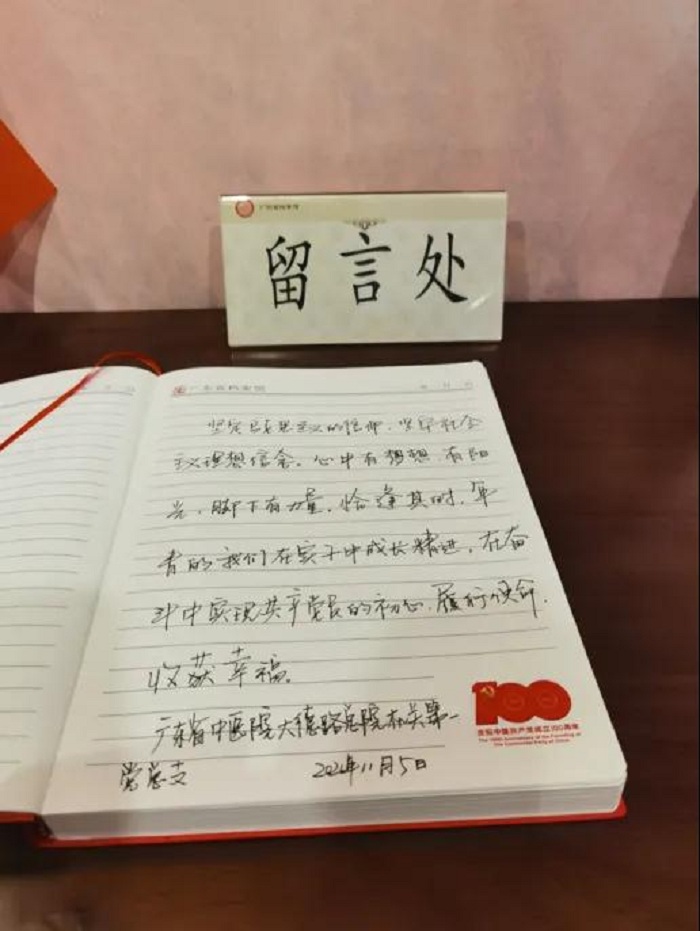 留言处
广东省档案馆
坚定马克思主义的信仰，坚定社会
主义理想信念。心中有梦想，有阳
光，脚下有力量，恰逢其时，年
青的我们在实干中成长精进，在奋
斗中实现共产党员的初心，履行使命，
收获幸福。
广东省中医院大德路总院机关第一
党总支
2021年11月5日
100
庆祝中国共产党成立100周年
The 100th Anniversary of the Founding of
The Communist Party of China